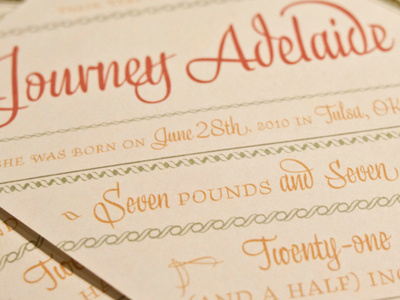 Journey Adelaide
SHE WAS BORN ON June 28th, 2010 IN Tulsa, OK
Seven POUNDS and Seven
Twenty-one
(AND A HALF)